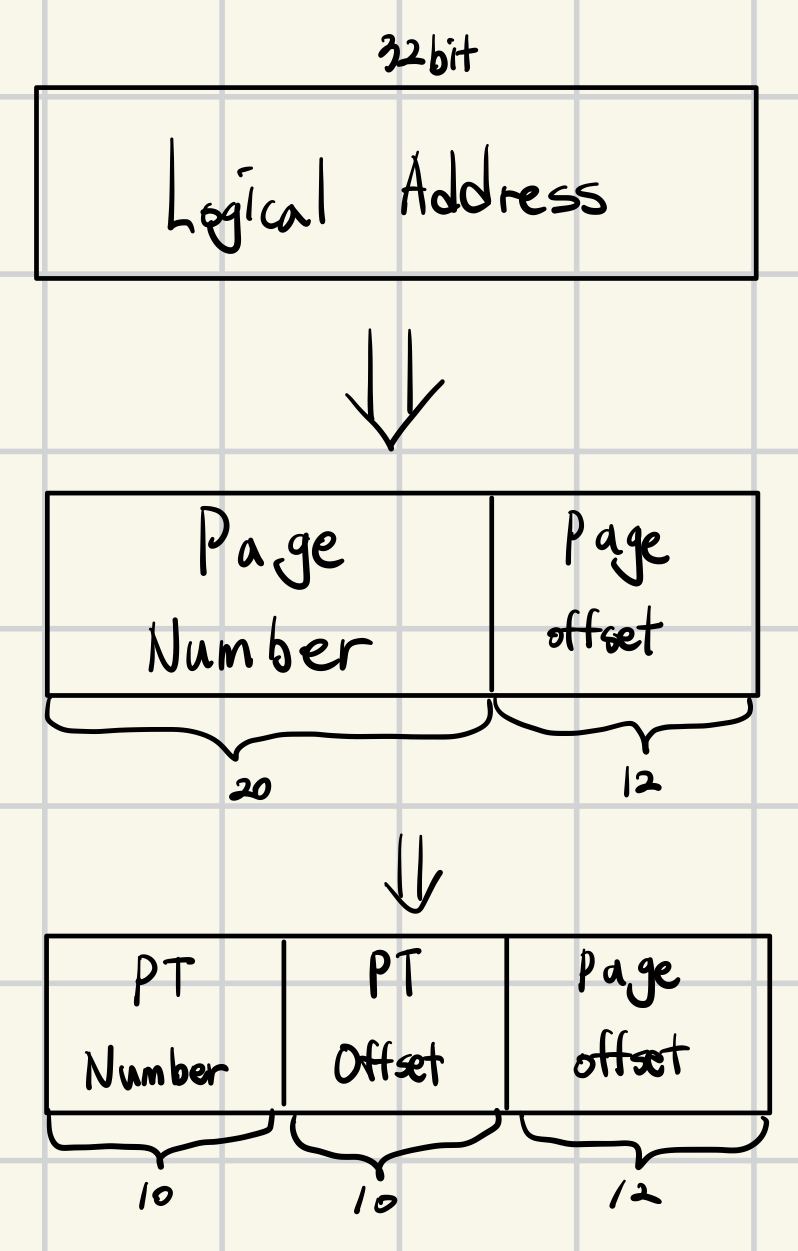 32bit
Logical Address
Page
Number
Page
offset
20
12
PT
Number
PT
Offset
Page
offset
10
10
12